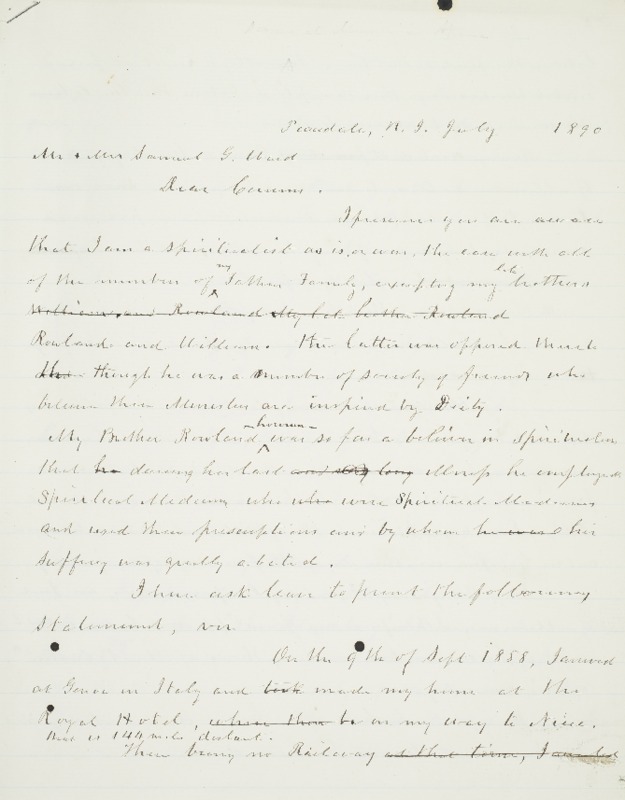 Peacedale, R. I. July 1890
Mr & Mrs Samuel G. Ward
Dear Cousins.
I presume you are aware
that I am a spiritualist as is, or was, the case with all
of the members of my Father Family, excepting my late brothers
Rowland and William. The latter was opposed
though he was a member of society of friends who
believe their Ministers are inspired by Deity.
My Brother Rowland however was so far a believer in Spiritualism
that during his last illness he employed
Spiritual Mediums who were Spiritual Mediums
and used their prescriptions and by whom his
suffring was greatly abated.
I here ask leave to present the following
Statement, viz
On the 9th of Sept 1858, I arrived
at Genoa in Italy and took made my home at the
Royal Hotel, on my way to Nice.
that is 144 miles distant.
There being no Railway at that time, I